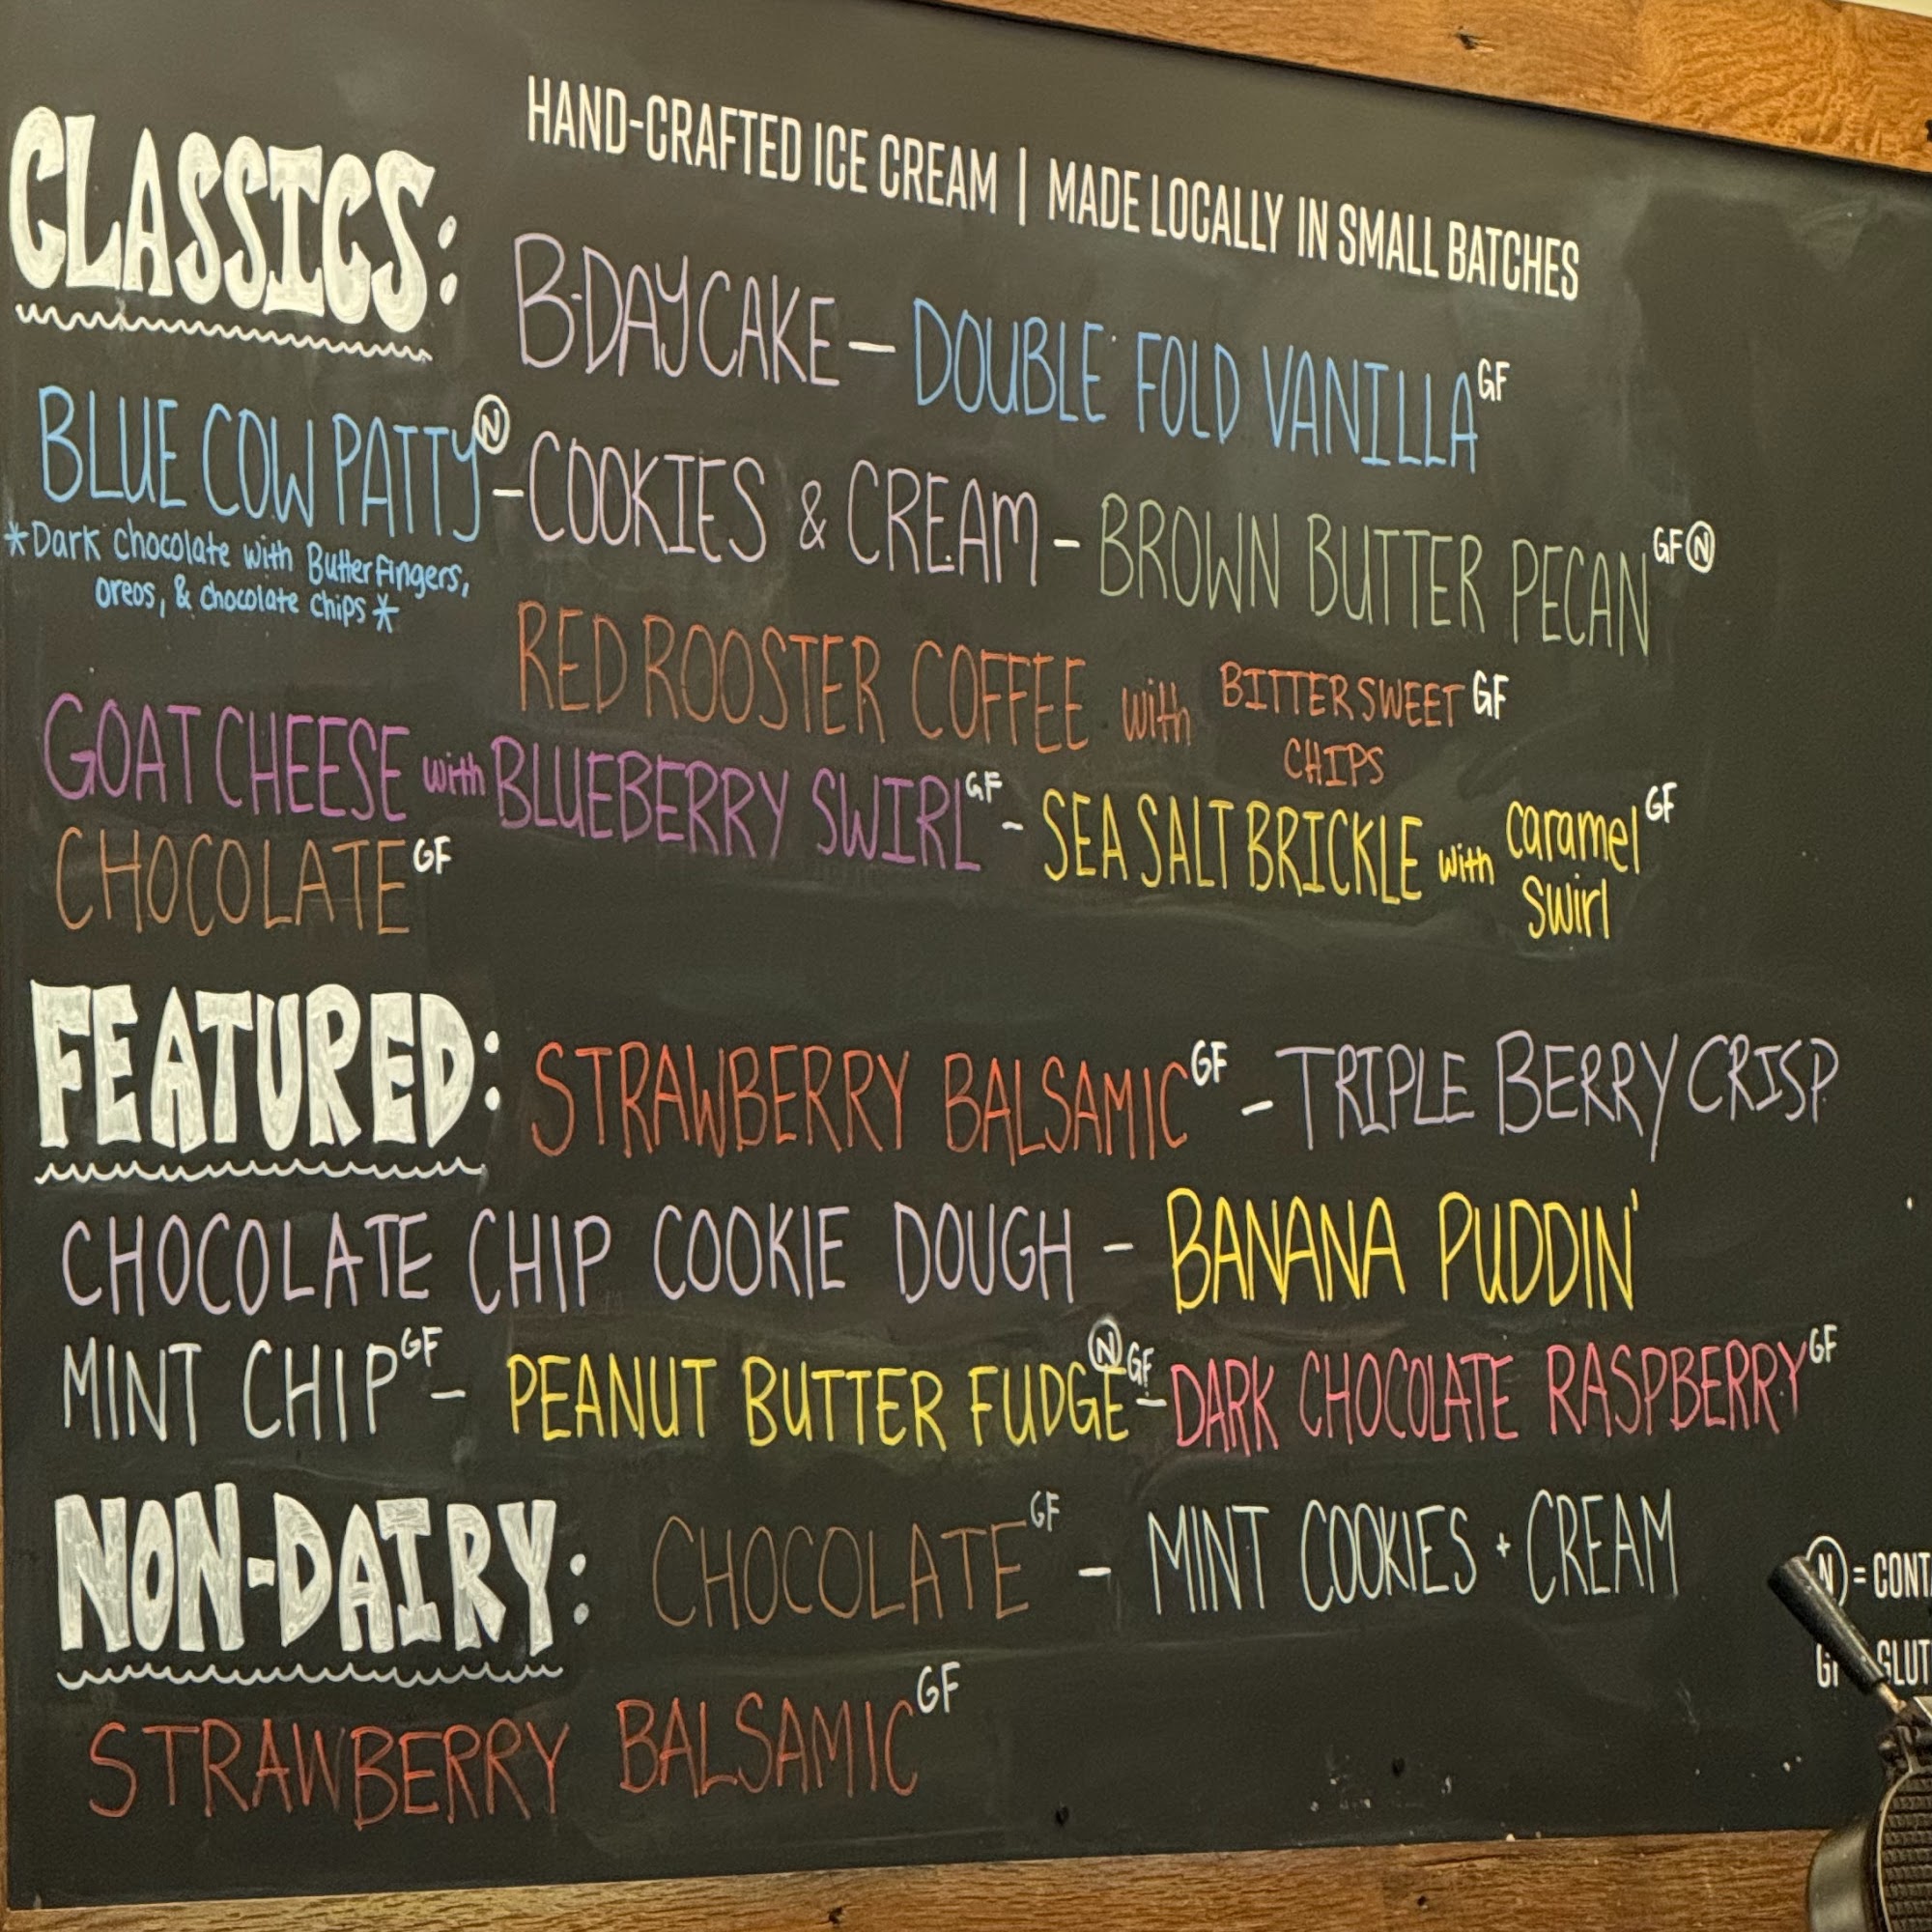 HAND-CRAFTED ICE CREAM | MADE LOCALLY IN SMALL BATCHES
CLASSICS:
B-DAY CAKE — DOUBLE FOLD VANILLA GF
BLUE COW PATTY Ⓝ - COOKIES & CREAM - BROWN BUTTER PECAN GF Ⓝ
*Dark chocolate with Butterfingers,
oreos, & chocolate chips*
RED ROOSTER COFFEE with BITTERSWEET GF
CHIPS
GOAT CHEESE with BLUEBERRY SWIRL GF - SEA SALT BRICKLE with caramel GF
swirl
CHOCOLATE GF
FEATURED:
STRAWBERRY BALSAMIC GF - TRIPLE BERRY CRISP
CHOCOLATE CHIP COOKIE DOUGH - BANANA PUDDIN'
MINT CHIP GF - PEANUT BUTTER FUDGE Ⓝ GF - DARK CHOCOLATE RASPBERRY GF
NON-DAIRY:
CHOCOLATE GF - MINT COOKIES + CREAM
STRAWBERRY BALSAMIC GF
Ⓝ = CONT